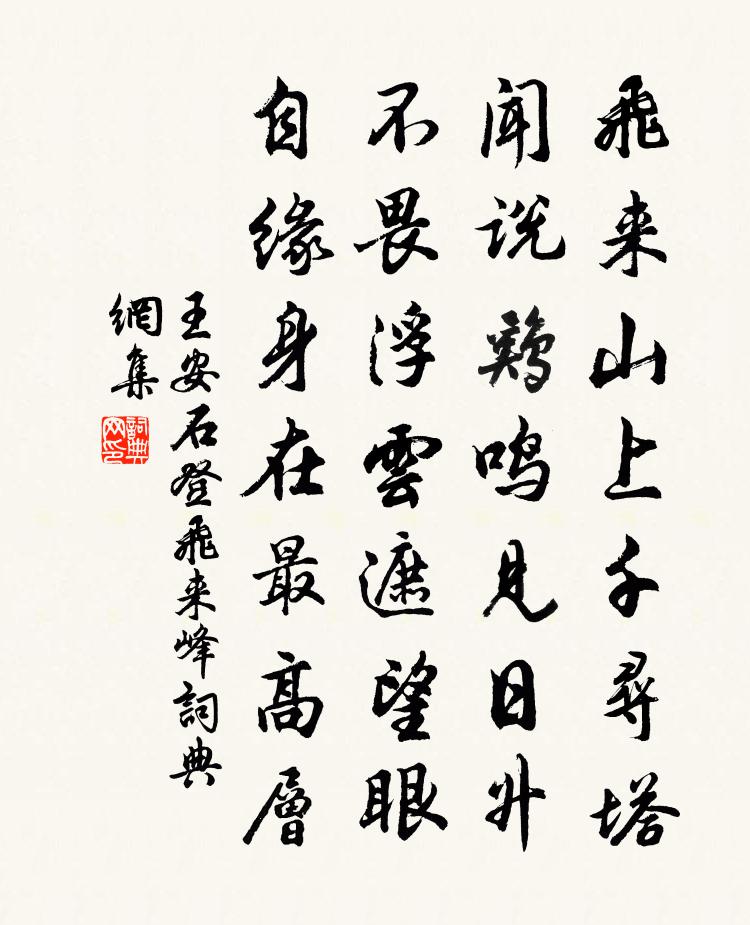 飛来山上千尋塔
聞説鶏鳴見日升
不畏浮雲遮望眼
自縁身在最高層
王安石登飛来峰詞典
網集
詞典
网印